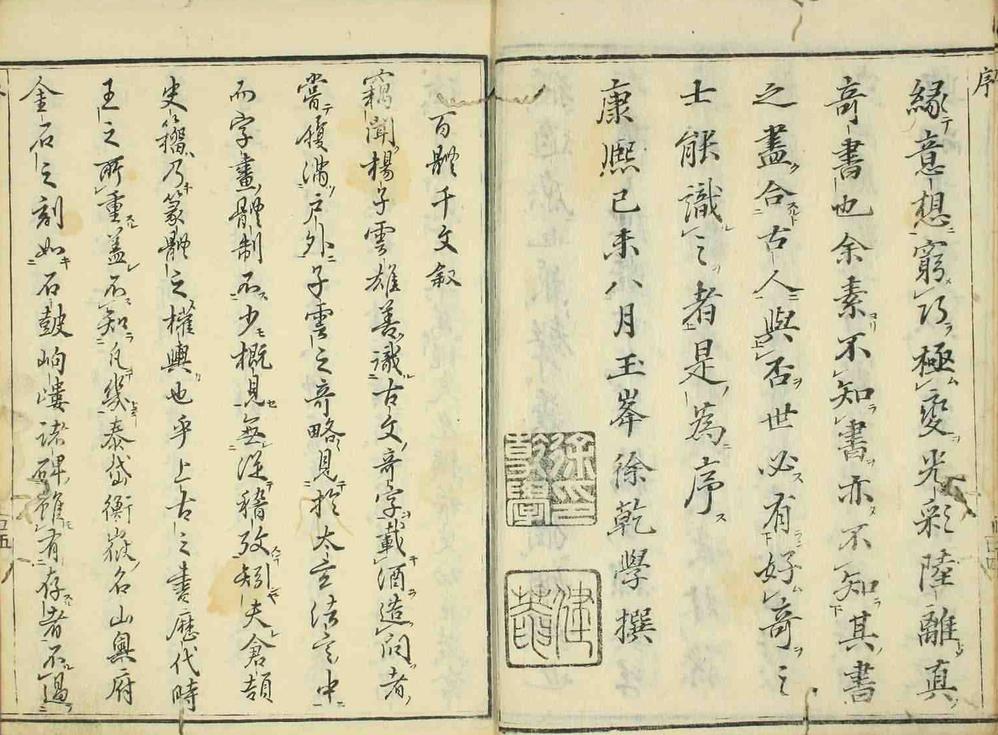 序
緣意想窮巧極變光彩陸離真
奇書也余素不知書亦不知其書
之盡合古人與否世必有好奇之
士能識之者是為序
康熙己未八月玉峯徐乾學撰
百體千文叙
竊聞楊子雲雄善識古文奇字載酒造問者
嘗履滿戶外子雲之奇略見於太玄法言中
而字畫體制不少概見無從稽攷矧夫倉頡
史籀乃篆體之權輿也乎上古之書歷代時
王之所重蓋不知凡幾泰岱衡嶽名山奧府
金石之刻如石鼓岣嶁諸碑雖有存者不過